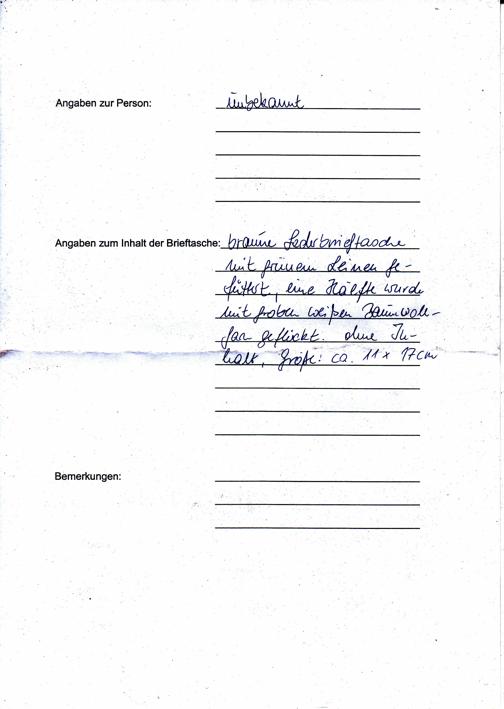 Angaben zur Person: unbekannt
Angaben zum Inhalt der Brieftasche: braune Lederbrieftasche
mit grünem Leinen ge-
füttert, eine Hälfte wurde
mit grobem weißen Baumwoll-
garn geflickt. ohne In-
halt, Größe: ca. 11 x 17 cm
Bemerkungen: